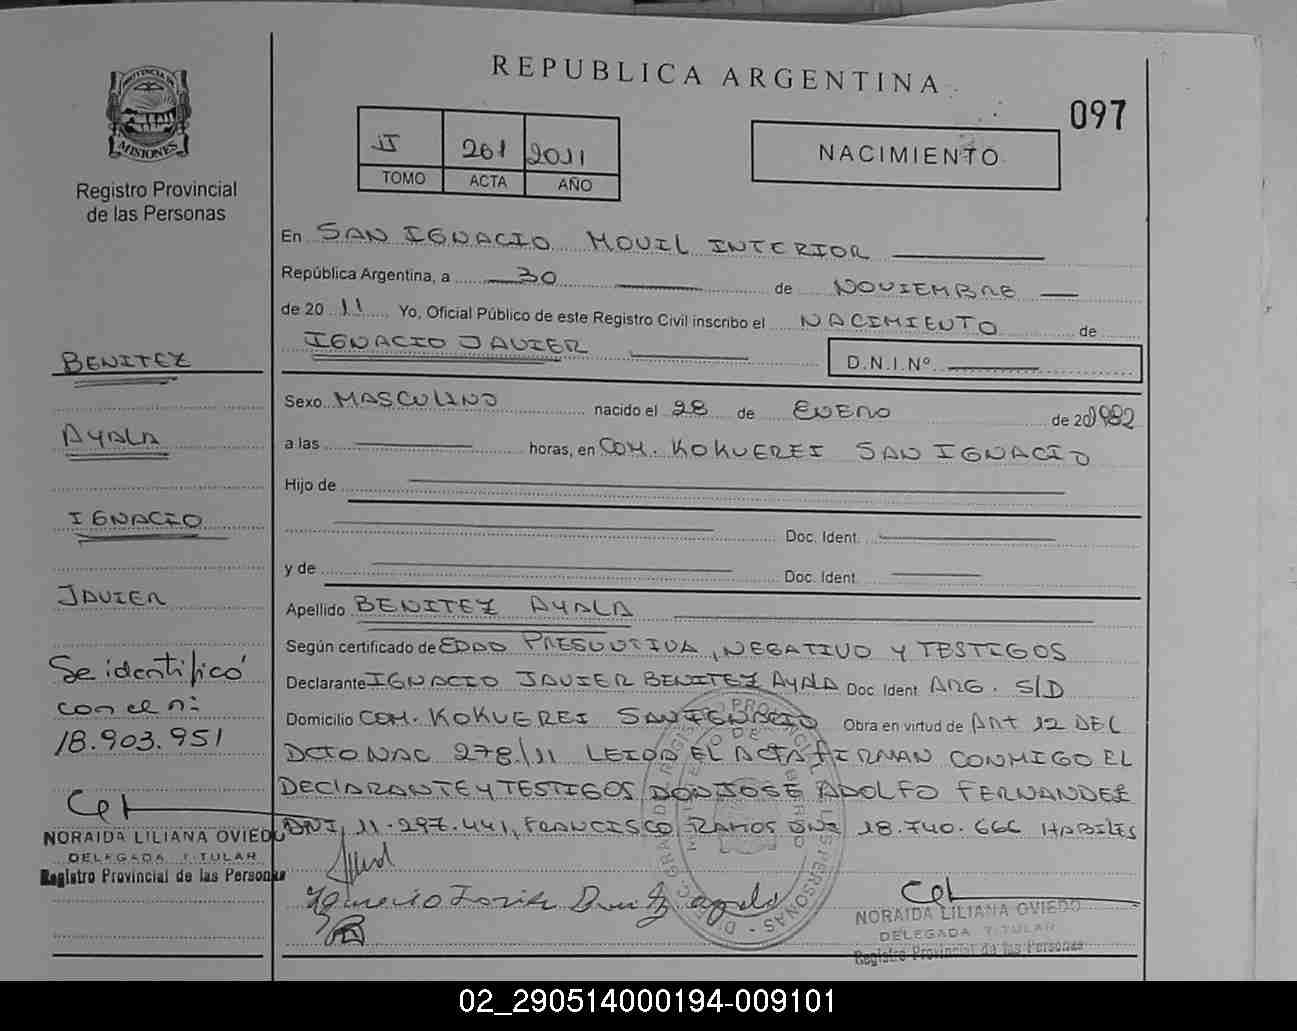 REPUBLICA ARGENTINA
097
PROVINCIA DE
MISIONES
Registro Provincial
de las Personas
II 261 2011
TOMO ACTA AÑO
NACIMIENTO
En SAN IGNACIO MOVIL INTERIOR
República Argentina, a 30 de NOVIEMBRE
de 20 11 Yo, Oficial Público de este Registro Civil inscribo el NACIMIENTO de
IGNACIO JAVIER D.N.I.Nº
Sexo MASCULINO nacido el 28 de ENERO de 201982
a las horas, en COM. KOKUEREI SAN IGNACIO
Hijo de
Doc. Ident.
y de Doc. Ident.
Apellido BENITEZ AYALA
Según certificado de EDAD PRESUNTIVA, NEGATIVO Y TESTIGOS
Declarante IGNACIO JAVIER BENITEZ AYALA Doc. Ident. ARG. S/D
Domicilio COM. KOKUEREI SAN IGNACIO Obra en virtud de ART 12 DEL
DCTO NAC 278/11 LEIDA EL ACTA FIRMAN CONMIGO EL
DECLARANTE Y TESTIGOS DON JOSE ADOLFO FERNANDEZ
DNI 11.297.441, FRANCISCO RAMOS DNI 18.740.666 HABILES
Ignacio Javier Benitez ayala
NORAIDA LILIANA OVIEDO
DELEGADA TITULAR
Registro Provincial de las Personas
BENITEZ
AYALA
IGNACIO
JAVIER
Se identificó
con el nº
18.903.951
NORAIDA LILIANA OVIEDO
DELEGADA TITULAR
Registro Provincial de las Personas
02_290514000194-009101